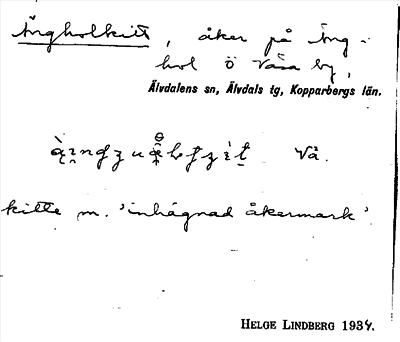 Ängholkitt, åker på Äng-
hol ö Våsa by,
Älvdalens sn, Älvdals tg, Kopparbergs län.
Vå.
kitte m. 'inhägnad åkermark'.
HELGE LINDBERG 1934.